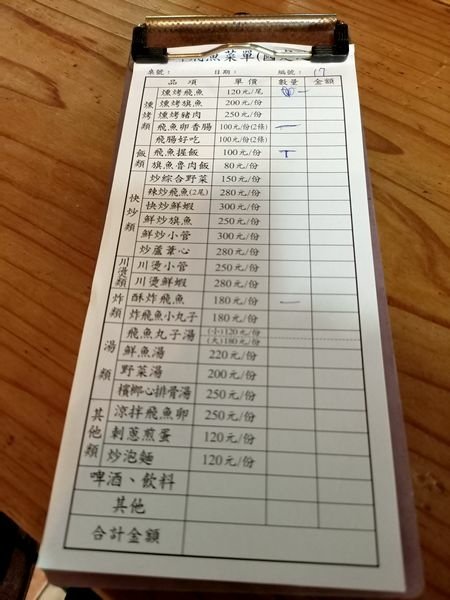 飛魚菜單(國
桌號： 日期： 編號： 17
品項 單價 數量 金額
燻烤類
燻烤飛魚 120元/尾 一
燻烤旗魚 200元/份
燻烤豬肉 250元/份
飛魚卵香腸 100元/份(2條) 一
飛腸好吃 100元/份(2條)
飯類
飛魚握飯 100元/份 T
旗魚魯肉飯 80元/份
快炒類
炒綜合野菜 150元/份
辣炒飛魚(2尾) 280元/份
快炒鮮蝦 300元/份
鮮炒旗魚 250元/份
鮮炒小管 300元/份
炒蘆葦心 280元/份
川燙類
川燙小管 250元/份
川燙鮮蝦 280元/份
炸類
酥炸飛魚 180元/份 一
炸飛魚小丸子 180元/份
湯類
飛魚丸子湯 (小)120元/份
(大)180元/份
鮮魚湯 220元/份
野菜湯 200元/份
檳榔心排骨湯 250元/份
其他類
涼拌飛魚卵 250元/份
刺蔥煎蛋 120元/份
炒泡麵 120元/份
啤酒、飲料
其他
合計金額